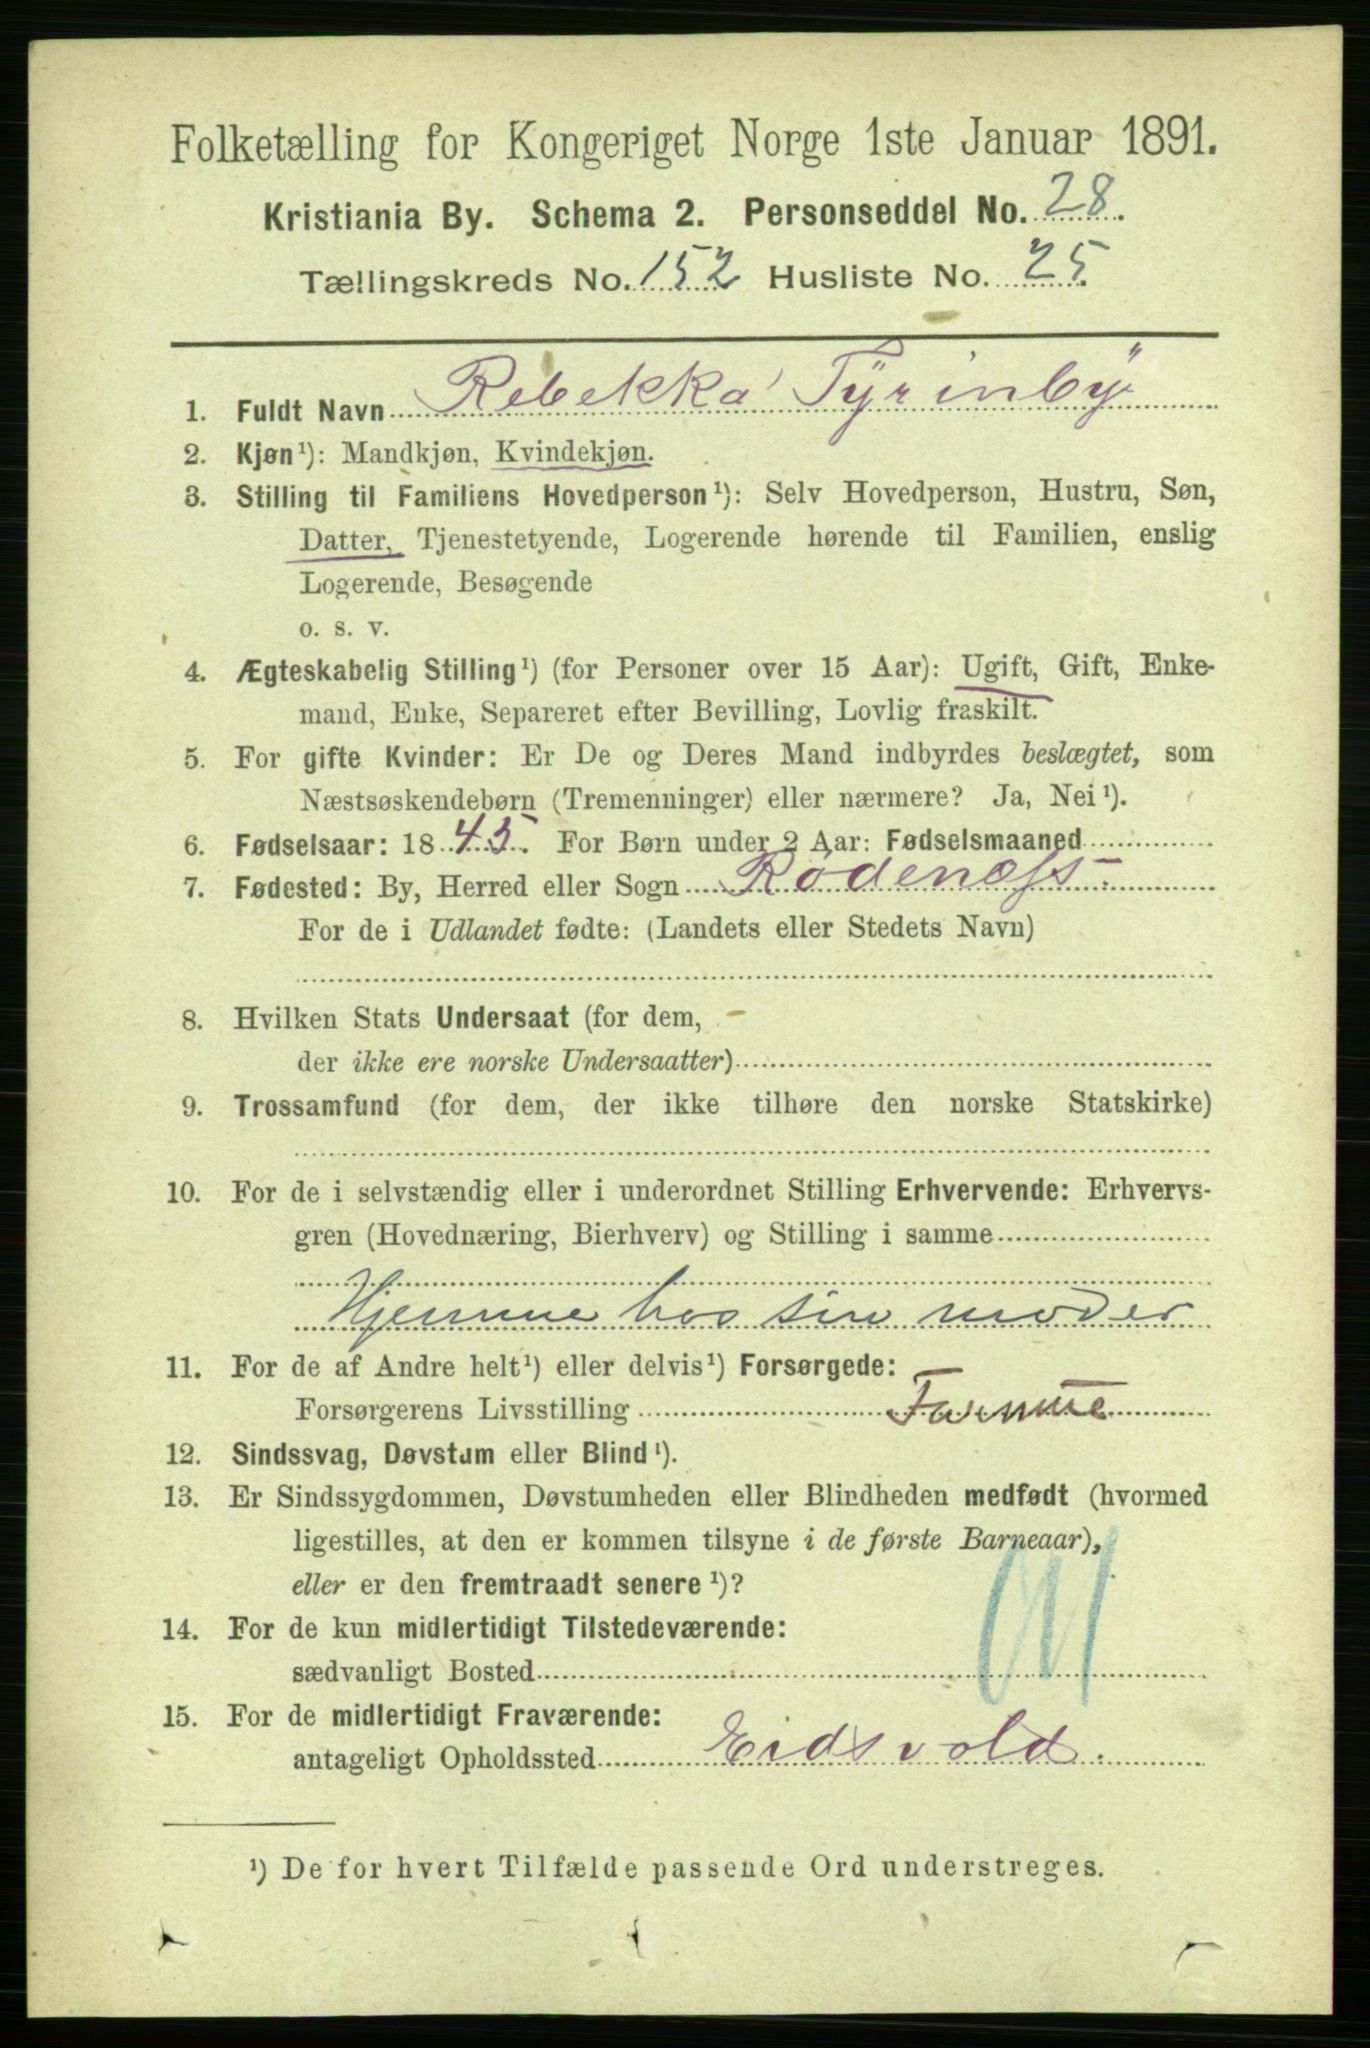 Folketælling for Kongeriget Norge 1ste Januar 1891.
Kristiania By. Schema 2. Personseddel No. 28.
Tællingskreds No. 152 Husliste No. 25.
1. Fuldt Navn Rebekka Tyrinby
2. Kjøn¹): Mandkjøn, Kvindekjøn.
3. Stilling til Familiens Hovedperson¹): Selv Hovedperson, Hustru, Søn,
Datter, Tjenestetyende, Logerende hørende til Familien, enslig
Logerende, Besøgende
o. s. v.
4. Ægteskabelig Stilling¹) (for Personer over 15 Aar): Ugift, Gift, Enke-
mand, Enke, Separeret efter Bevilling, Lovlig fraskilt.
5. For gifte Kvinder: Er De og Deres Mand indbyrdes beslægtet, som
Næstsøskendebørn (Tremenninger) eller nærmere? Ja, Nei¹).
6. Fødselsaar: 1845. For Børn under 2 Aar: Fødselsmaaned
7. Fødested: By, Herred eller Sogn Rødenæss.
For de i Udlandet fødte: (Landets eller Stedets Navn)
8. Hvilken Stats Undersaat (for dem,
der ikke ere norske Undersaatter)
9. Trossamfund (for dem, der ikke tilhøre den norske Statskirke)
10. For de i selvstændig eller i underordnet Stilling Erhvervende: Erhvervs-
gren (Hovednæring, Bierhverv) og Stilling i samme
Hjemme hos sin moder
11. For de af Andre helt¹) eller delvis¹) Forsørgede:
Forsørgerens Livsstilling
12. Sindssvag, Døvstum eller Blind¹).
13. Er Sindssygdommen, Døvstumheden eller Blindheden medfødt (hvormed
ligestilles, at den er kommen tilsyne i de første Barneaar),
eller er den fremtraadt senere¹)?
14. For de kun midlertidigt Tilstedeværende:
sædvanligt Bosted
15. For de midlertidigt Fraværende:
antageligt Opholdssted Eidsvold.
¹) De for hvert Tilfælde passende Ord understreges.